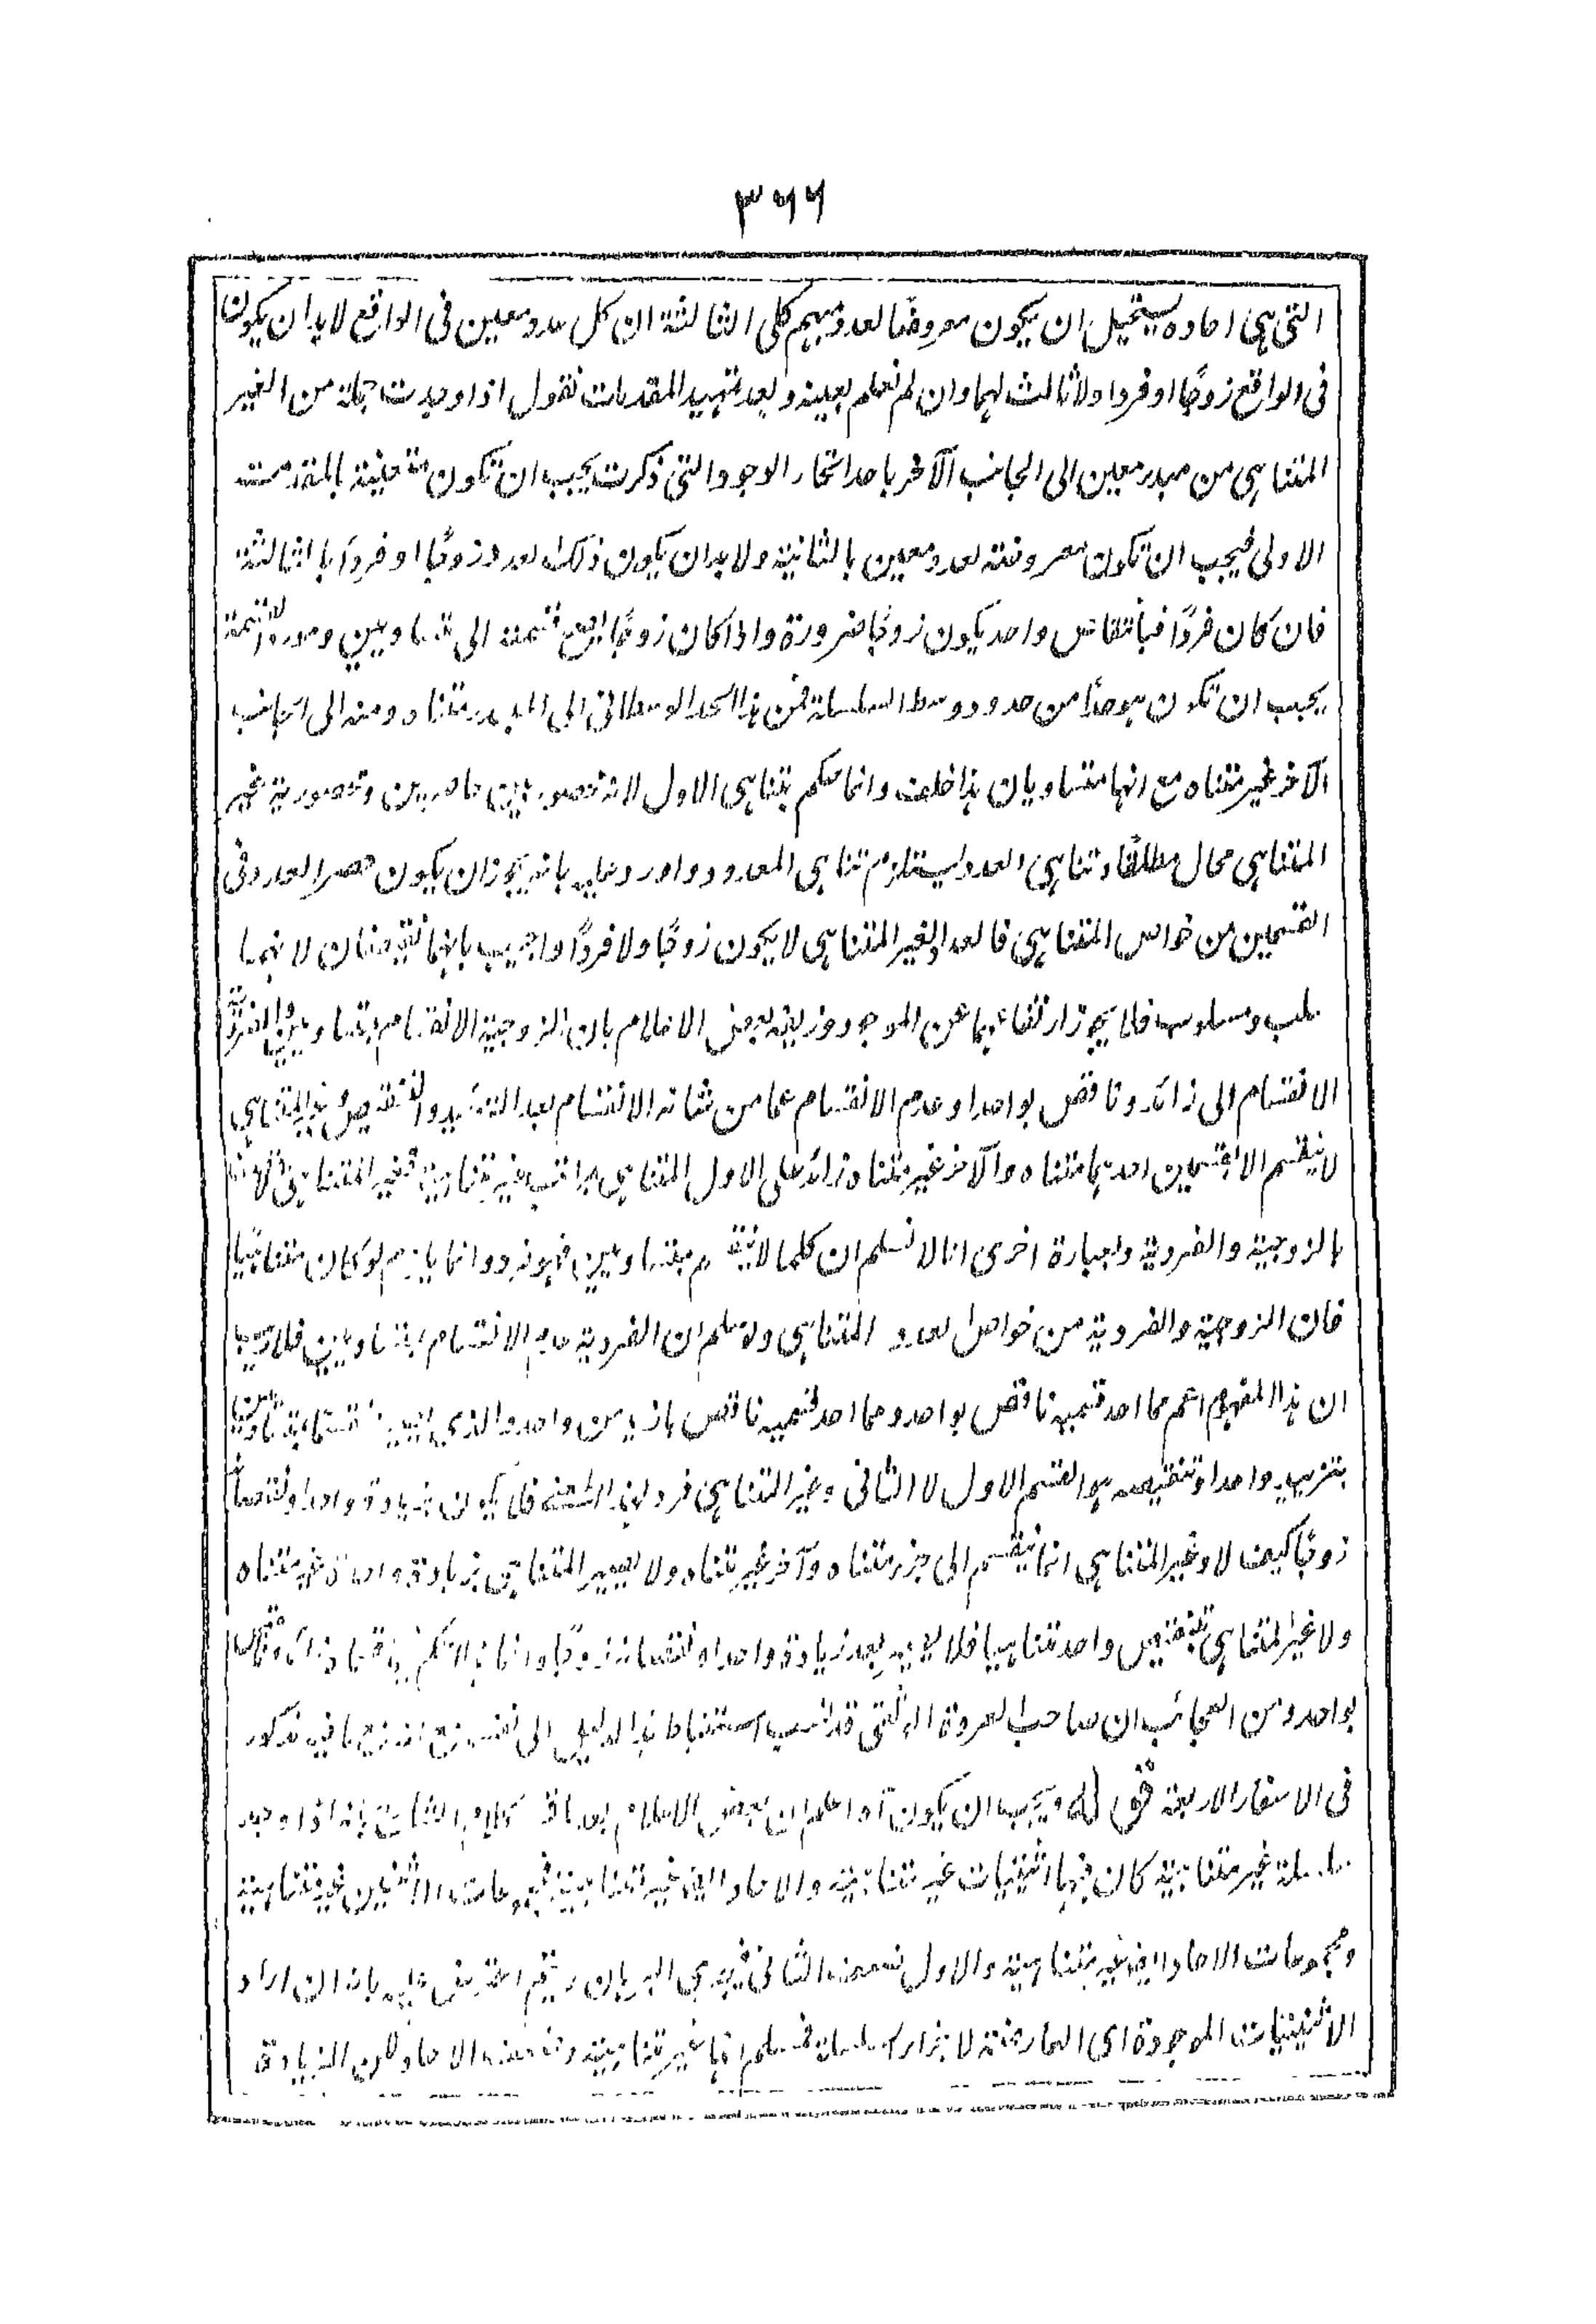 ٣٦٦
التى هى احاده يستحيل ان يكون معروضًا لعدد مبهم كلى الثالثة ان كل عدد معين فى الواقع لا بد ان يكون
فى الواقع زوجًا او فردا ولا ثالث لهما وان لم نعلم بعينه وبعد تمهيد المقدمات نقول اذا وجدت جملة من الغير
المتناهى من مبدء معين الى الجانب الآخر باحد انحاء الوجود التى ذكرت يجب ان تكون متعينة بالمقدمة
الاولى فيجب ان تكون معروضة لعدد معين بالثانية ولا بد ان يكون ذلك العدد زوجًا او فردًا بالثالثة
فان كان فردًا فبانتقاص واحد يكون زوجًا ضرورة واذا كان زوجًا قسمته الى متساويين ومورد القسمة
يجب ان تكون حدًا من حدود وسط السلسلة فمن هذا الحد الوسطانى الى المبدء متناه ومنه الى الجانب
الآخر غير متناه مع انهما متساويان هذا خلف وانما حكم بتناهى الاول لانه محصور بين حاصرين ومحصورية غير
المتناهى محال مطلقًا وتناهى العدد يستلزم تناهى المعدود واورد عليه بانه يجوز ان يكون حصر العدد فى
القسمين من خواص المتناهى فالعدد الغير المتناهى لا يكون زوجًا ولا فردًا واجيب بانهما نقيضان لانهما
سلب ومسلوب فلا يجوز ارتفاعهما عن الموجود وزيفه بعض الاعلام بان الزوجية الانقسام بمتساويين والفردية
الانقسام الى زائد وناقص بواحد او عدم الانقسام عما من شانه الانقسام بعد التزئيد والتنقيص وغير المتناهى
لا ينقسم الا بقسمين احدهما متناه والآخر غير متناه زائد على الاول المتناهى بمراتب غير متناهية فغير المتناهى
بالزوجية والفردية وبعبارة اخرى انا لا نسلم ان كلما لا ينقسم بمتساويين فهو فرد وانما يلزم لو كان متناهيًا
فان الزوجية والفردية من خواص العدد المتناهى ولو سلم ان الفردية عدم الانقسام بمتساويين فلا ريب
ان هذا المفهوم اعم مما احد قسميه ناقص بواحد ومما احد قسميه ناقص بازيد من واحد والذى بمتساويين
بتزييد واحد او تنقيصه هو القسم الاول لا الثانى وغير المتناهى فرد لهذا المعنى فلا يكون بزيادة واحد او نقصانه
زوجًا كيف لا وغير المتناهى انما ينقسم الى جزء متناه وآخر غير متناه ولا يصير المتناهى بزيادة واحد غير متناه
ولا غير المتناهى بتنقيص واحد متناهيا فلا يصير بعد زيادة واحد او نقصانه زوجًا وانما
بواحد ومن العجائب ان صاحب العروة الوثقى قد نسب استنباط هذا الدليل الى نفسه مع انه مذكور
فى الاسفار الاربعة قوله ويجب ان يكون آه اعلم ان بعض الاعلام بانه اذا وجد
سلسلة غير متناهية كان فيها اثنينيات غير متناهية والاحاد ايضا غير متناهية فمجموعات الاثنين غير متناهية
ومجموعات الاحاد ايضا غير متناهية والاول نصف الثانى فيجرى البرهان ثم اعترض عليه بانه ان اراد
الاثنينيات الموجودة اى العارضة لاجزاء السلسلة فمسلم انها غير متناهية ونصف الاحاد لكن الزيادة